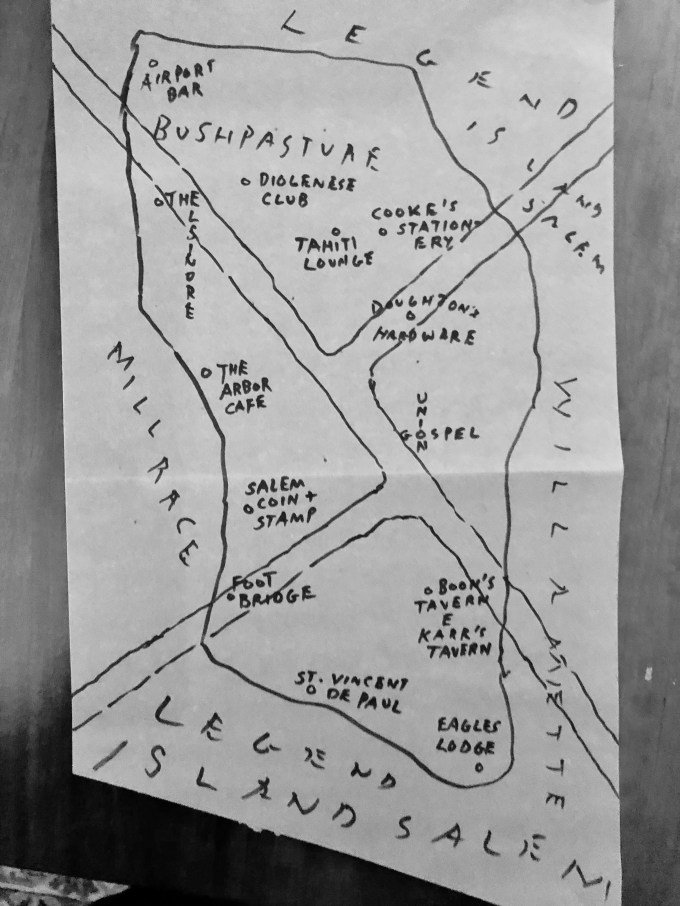 LEGEND
ISLAND
SALEM
AIRPORT
BAR
BUSHPASTURE
DIOGENESE
CLUB
THE
ELSINORE
COOKE'S
STATION-
ERY
TAHITI
LOUNGE
DOUGHTON'S
HARDWARE
THE
ARBOR
CAFE
MILL RACE
UNION
GOSPEL
WILLAMETTE
SALEM
COIN +
STAMP
FOOT
BRIDGE
BOOK'S
TAVERN
E
KARR'S
TAVERN
ST. VINCENT
DE PAUL
EAGLES
LODGE
LEGEND
ISLAND SALEM